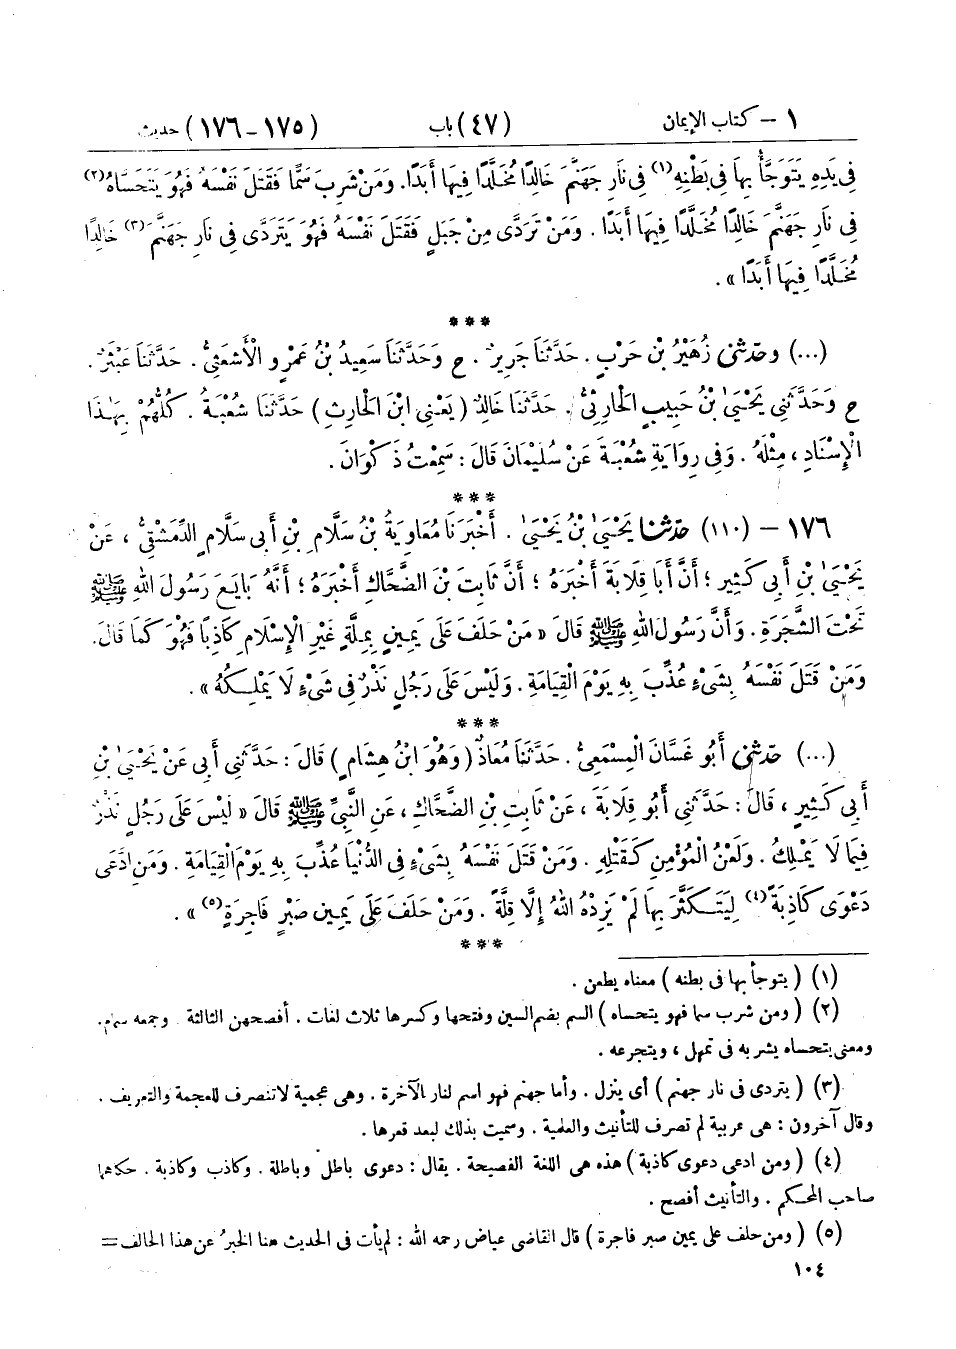 ١ – كتاب الإيمان (٤٧) باب (١٧٥-١٧٦) حديث
فِى يَدِهِ يَتَوَجَّأُ بِهَا فِى بَطْنِهِ(١) فِى نَارِ جَهَنَّمَ خَالِدًا مُخَلَّدًا فِيهَا أَبَدًا. وَمَنْ شَرِبَ سَمًّا فَقَتَلَ نَفْسَهُ فَهُوَ يَتَحَسَّاهُ(٢)
فِى نَارِ جَهَنَّمَ خَالِدًا مُخَلَّدًا فِيهَا أَبَدًا. وَمَنْ تَرَدَّى مِنْ جَبَلٍ فَقَتَلَ نَفْسَهُ فَهُوَ يَتَرَدَّى فِى نَارِ جَهَنَّمَ(٣) خَالِدًا
مُخَلَّدًا فِيهَا أَبَدًا».
***
(...) وحدثنى زُهَيْرُ بْنُ حَرْبٍ. حَدَّثَنَا جَرِيرٌ. ح وَحَدَّثَنَا سَعِيدُ بْنُ عَمْرٍو الْأَشْعَثِىُّ. حَدَّثَنَا عَبْثَرٌ.
ح وَحَدَّثَنِى يَحْيَىٰ بْنُ حَبِيبٍ الْحَارِثِىُّ. حَدَّثَنَا خَالِدٌ (يَعْنِى ابْنَ الْحَارِثِ) حَدَّثَنَا شُعْبَةُ. كُلُّهُمْ بِهَـٰذَا
الْإِسْنَادِ، مِثْلَهُ. وَفِى رِوَايَةِ شُعْبَةَ عَنْ سُلَيْمَانَ قَالَ: سَمِعْتُ ذَكْوَانَ.
***
١٧٦ – (١١٠) حدثنا يَحْيَىٰ بْنُ يَحْيَىٰ. أَخْبَرَنَا مُعَاوِيَةُ بْنُ سَلَّامِ بْنِ أَبِى سَلَّامٍ الدِّمَشْقِىُّ، عَنْ
يَحْيَىٰ بْنِ أَبِى كَثِيرٍ؛ أَنَّ أَبَا قِلَابَةَ أَخْبَرَهُ؛ أَنَّ ثَابِتَ بْنَ الضَّحَّاكِ أَخْبَرَهُ؛ أَنَّهُ بَايَعَ رَسُولَ اللهِ ﷺ
تَحْتَ الشَّجَرَةِ. وَأَنَّ رَسُولَ اللهِ ﷺ قَالَ «مَنْ حَلَفَ عَلَى يَمِينٍ بِمِلَّةٍ غَيْرِ الْإِسْلَامِ كَاذِبًا فَهُوَ كَمَا قَالَ.
وَمَنْ قَتَلَ نَفْسَهُ بِشَىْءٍ عُذِّبَ بِهِ يَوْمَ الْقِيَامَةِ. وَلَيْسَ عَلَى رَجُلٍ نَذْرٌ فِى شَىْءٍ لَا يَمْلِكُهُ».
***
(...) حدثنى أَبُو غَسَّانَ الْمِسْمَعِىُّ. حَدَّثَنَا مُعَاذٌ (وَهُوَ ابْنُ هِشَامٍ) قَالَ: حَدَّثَنِى أَبِى عَنْ يَحْيَىٰ بْنِ
أَبِى كَثِيرٍ، قَالَ: حَدَّثَنِى أَبُو قِلَابَةَ، عَنْ ثَابِتِ بْنِ الضَّحَّاكِ، عَنِ النَّبِىِّ ﷺ قَالَ «لَيْسَ عَلَى رَجُلٍ نَذْرٌ
فِيمَا لَا يَمْلِكُ. وَلَعْنُ الْمُؤْمِنِ كَقَتْلِهِ. وَمَنْ قَتَلَ نَفْسَهُ بِشَىْءٍ فِى الدُّنْيَا عُذِّبَ بِهِ يَوْمَ الْقِيَامَةِ. وَمَنِ ادَّعَى
دَعْوَى كَاذِبَةً(٤) لِيَتَكَثَّرَ بِهَا لَمْ يَزِدْهُ اللهُ إِلَّا قِلَّةً. وَمَنْ حَلَفَ عَلَى يَمِينِ صَبْرٍ فَاجِرَةٍ(٥)».
***
(١) (يتوجأ بها فى بطنه) معناه يطعن.
(٢) (ومن شرب سما فهو يتحساه) السم بضم السين وفتحها وكسرها ثلاث لغات. أفصحهن الثالثة وجمعه سمام.
ومعنى يتحساه يشربه فى تمهل، ويتجرعه.
(٣) (يتردى فى نار جهنم) أى ينزل. وأما جهنم فهو اسم لنار الآخرة. وهى عجمية لا تنصرف للعجمة والتعريف.
وقال آخرون: هى عربية لم تصرف للتأنيث والعلمية. وسميت بذلك لبعد قعرها.
(٤) (ومن ادعى دعوى كاذبة) هذه هى اللغة الفصيحة. يقال: دعوى باطل وباطلة. وكاذب وكاذبة. حكاهما
صاحب المحكم. والتأنيث أفصح.
(٥) (ومن حلف على يمين صبر فاجرة) قال القاضى عياض رحمه الله: لم يأت فى الحديث هنا الخبرُ عن هذا الحالف=
١٠٤